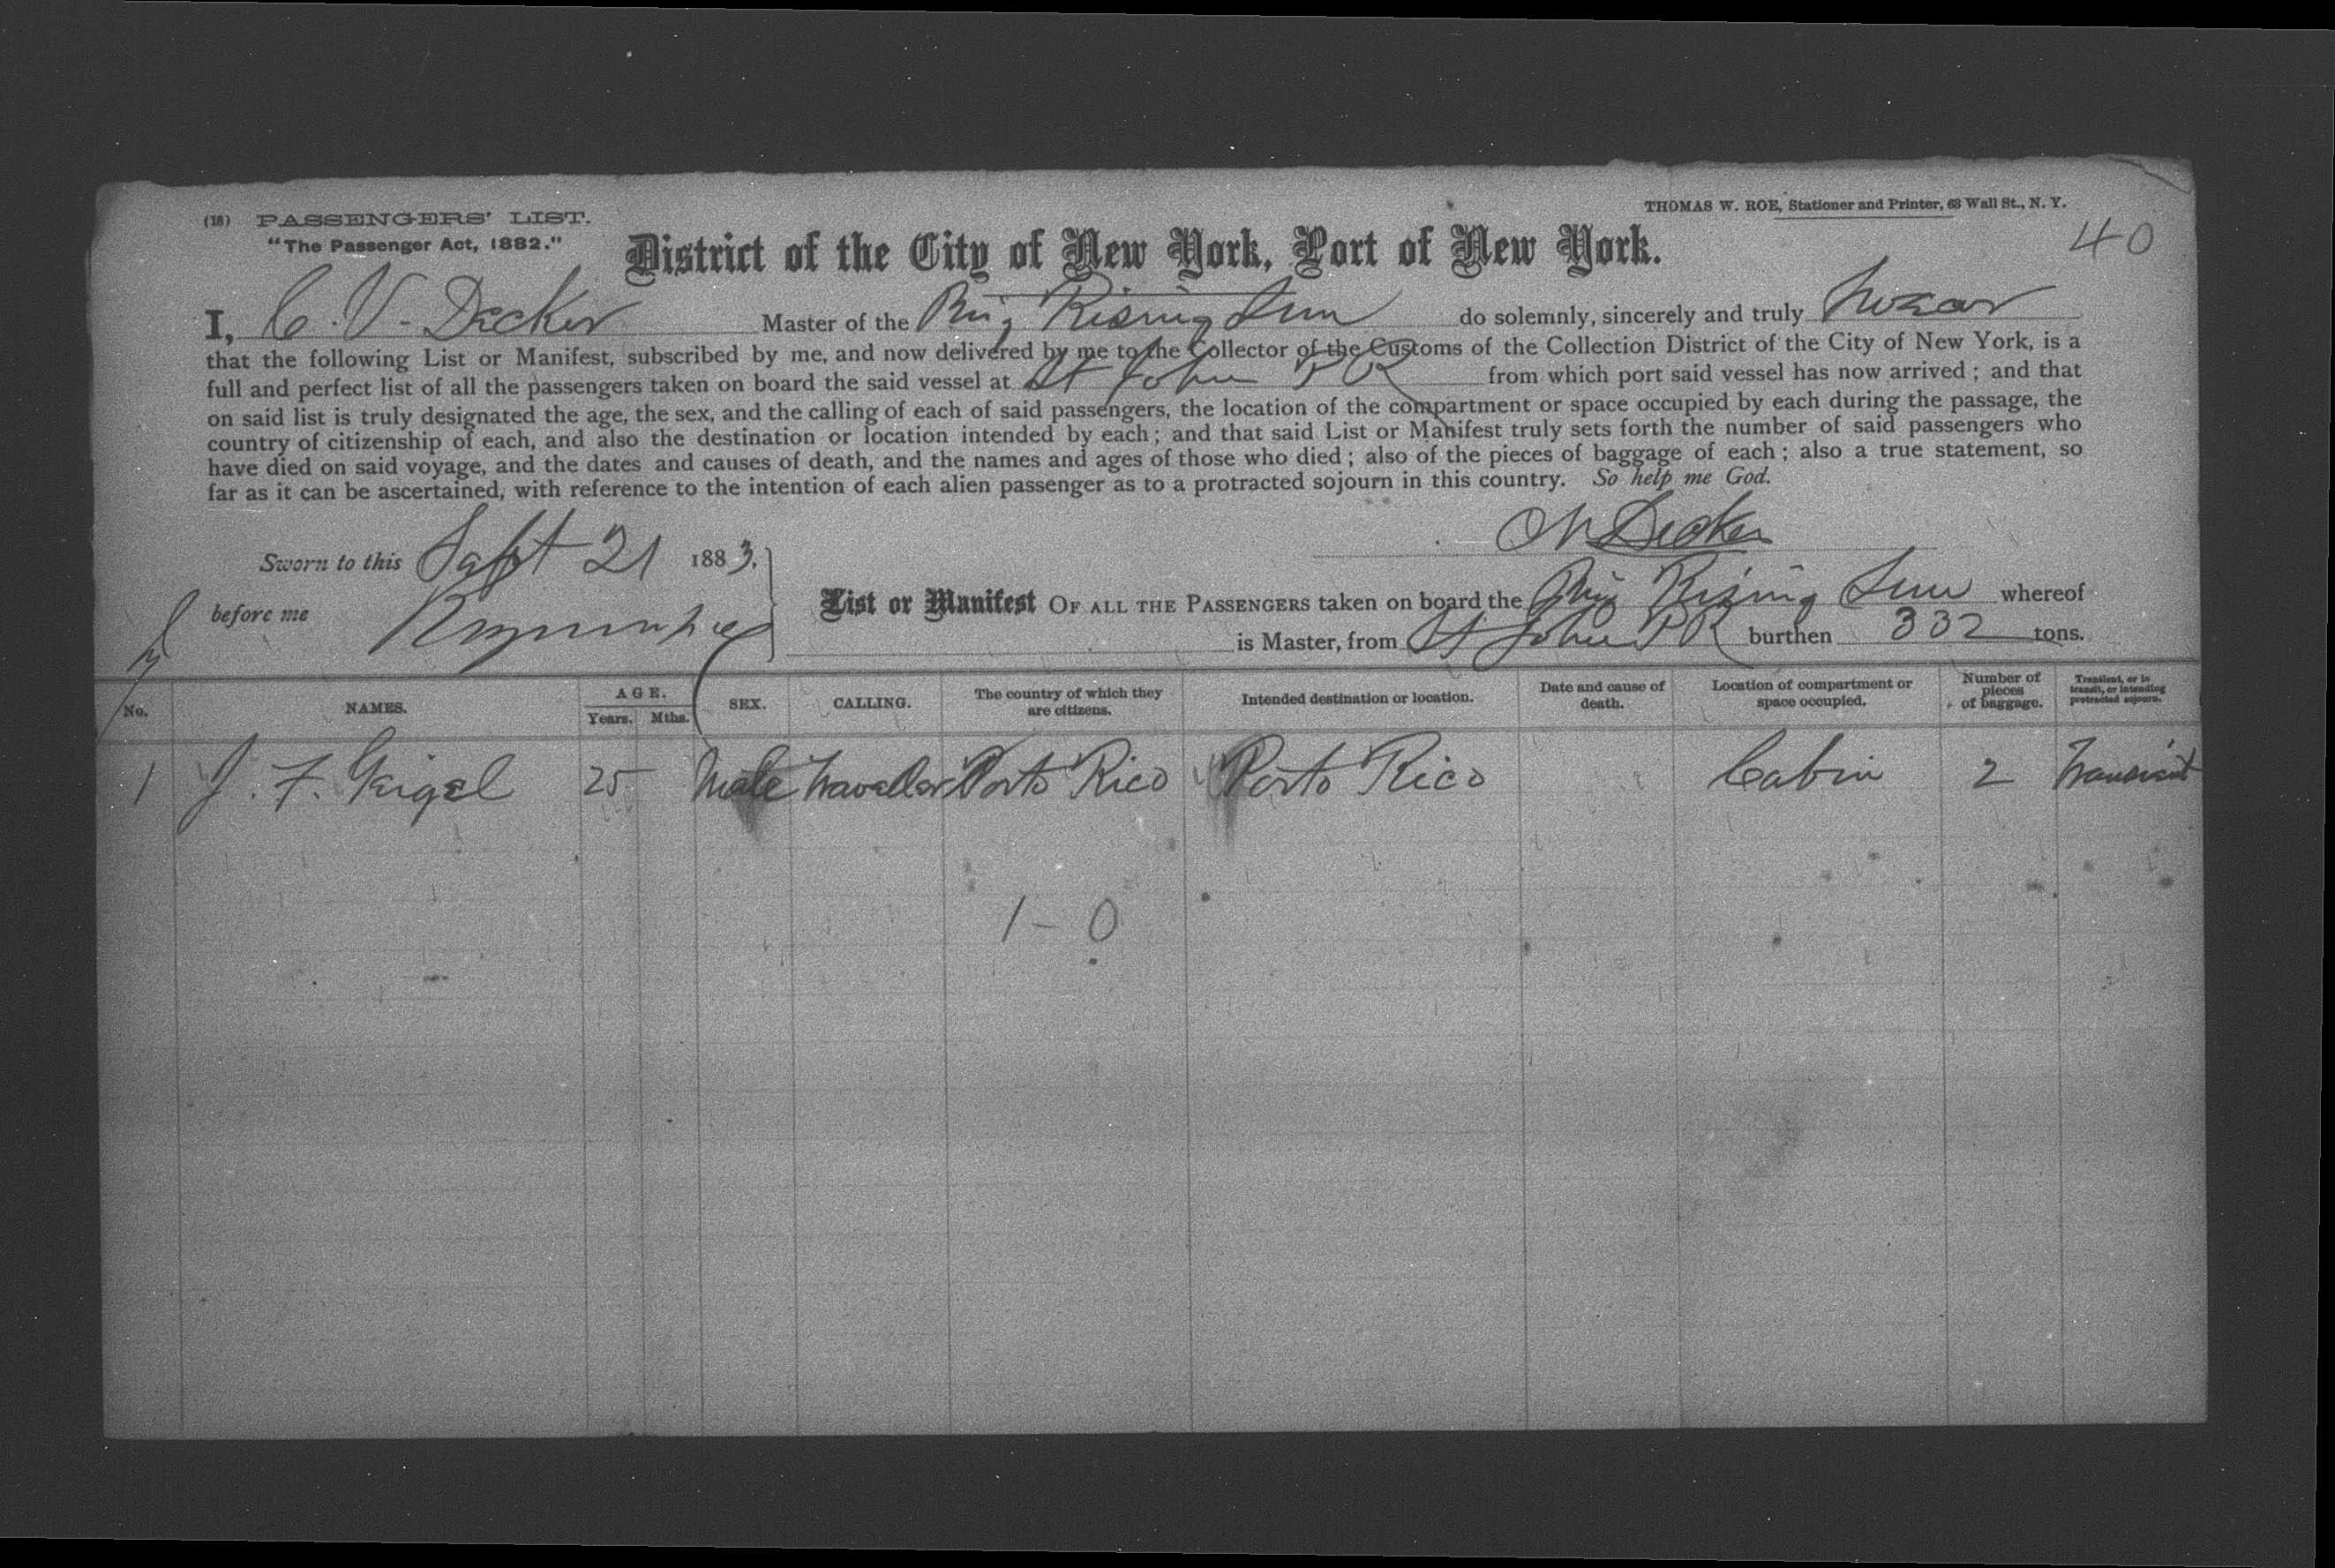 (18) PASSENGERS' LIST.
THOMAS W. ROE, Stationer and Printer, 68 Wall St., N. Y.
"The Passenger Act, 1882."
District of the City of New York, Port of New York.
40
I, C. V. Decker Master of the Brig Rising Sun do solemnly, sincerely and truly Swear
that the following List or Manifest, subscribed by me, and now delivered by me to the Collector of the Customs of the Collection District of the City of New York, is a
full and perfect list of all the passengers taken on board the said vessel at St John P R from which port said vessel has now arrived ; and that
on said list is truly designated the age, the sex, and the calling of each of said passengers, the location of the compartment or space occupied by each during the passage, the
country of citizenship of each, and also the destination or location intended by each ; and that said List or Manifest truly sets forth the number of said passengers who
have died on said voyage, and the dates and causes of death, and the names and ages of those who died ; also of the pieces of baggage of each ; also a true statement, so
far as it can be ascertained, with reference to the intention of each alien passenger as to a protracted sojourn in this country. So help me God.
Decker
Sworn to this Sept 21 1883,
before me
List or Manifest OF ALL THE PASSENGERS taken on board the Brig Rising Sun whereof
is Master, from St John P R burthen 332 tons.
No. NAMES. AGE. Years. Mths. SEX. CALLING. The country of which they are citizens. Intended destination or location. Date and cause of death. Location of compartment or space occupied. Number of pieces of baggage. Transient, or in transit, or intending protracted sojourn.
1 J. F. Geigel 25 Male Traveller Porto Rico Porto Rico Cabin 2 Transient
1 - 0